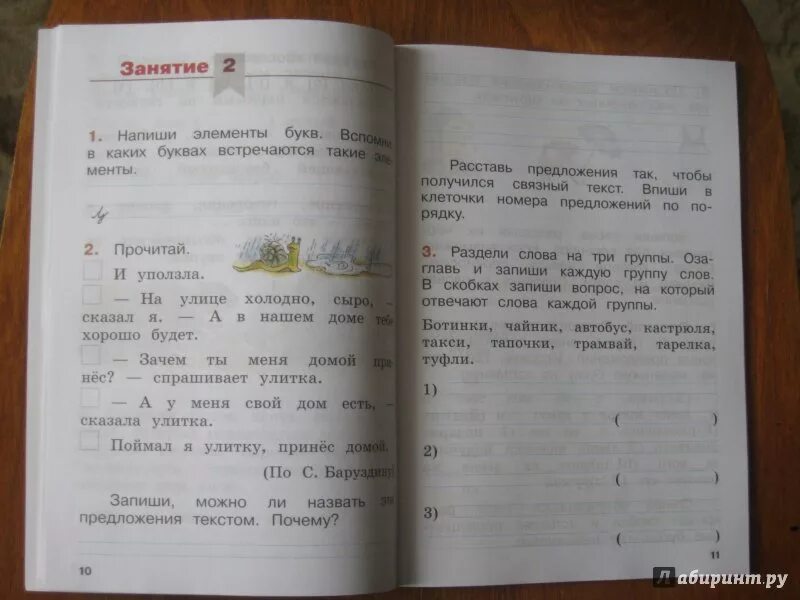 Занятие 2
1. Напиши элементы букв. Вспомни
в каких буквах встречаются такие эле-
менты.
2. Прочитай.
И уползла.
— На улице холодно, сыро, —
сказал я. — А в нашем доме тебе
хорошо будет.
— Зачем ты меня домой при-
нёс? — спрашивает улитка.
— А у меня свой дом есть, —
сказала улитка.
Поймал я улитку, принёс домой.
(По С. Баруздину)
Запиши, можно ли назвать эти
предложения текстом. Почему?
10
Расставь предложения так, чтобы
получился связный текст. Впиши в
клеточки номера предложений по по-
рядку.
3. Раздели слова на три группы. Оза-
главь и запиши каждую группу слов.
В скобках запиши вопрос, на который
отвечают слова каждой группы.
Ботинки, чайник, автобус, кастрюля,
такси, тапочки, трамвай, тарелка,
туфли.
1)
( )
2)
( )
3)
( )
11
Лабиринт.ру